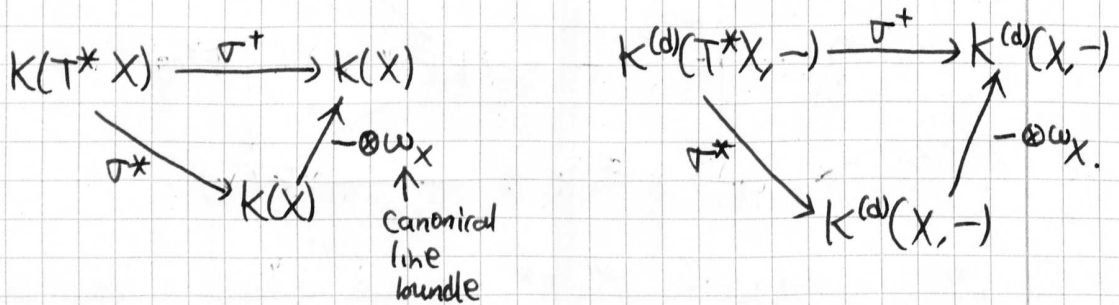 K(T* X) σ⁺ K(X)
σ* -⊗ω_X
K(X)
canonical
line
bundle
K^(d)(T*X, -) σ⁺ K^(d)(X, -)
σ* -⊗ω_X.
K^(d)(X, -)